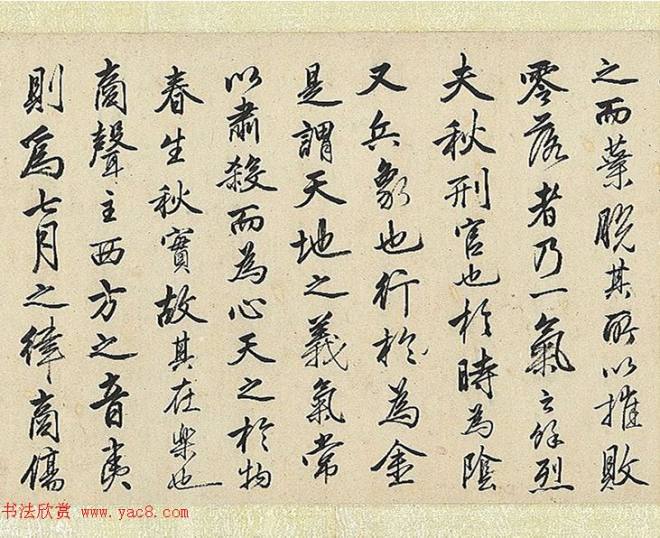 之而葉脫其所以摧敗
零落者乃一氣之餘烈
夫秋刑官也於時為陰
又兵象也行於為金
是謂天地之義氣常
以肅殺而為心天之於物
春生秋實故其在樂也
商聲主西方之音夷
則為七月之律商傷
书法欣赏 www.yac8.com